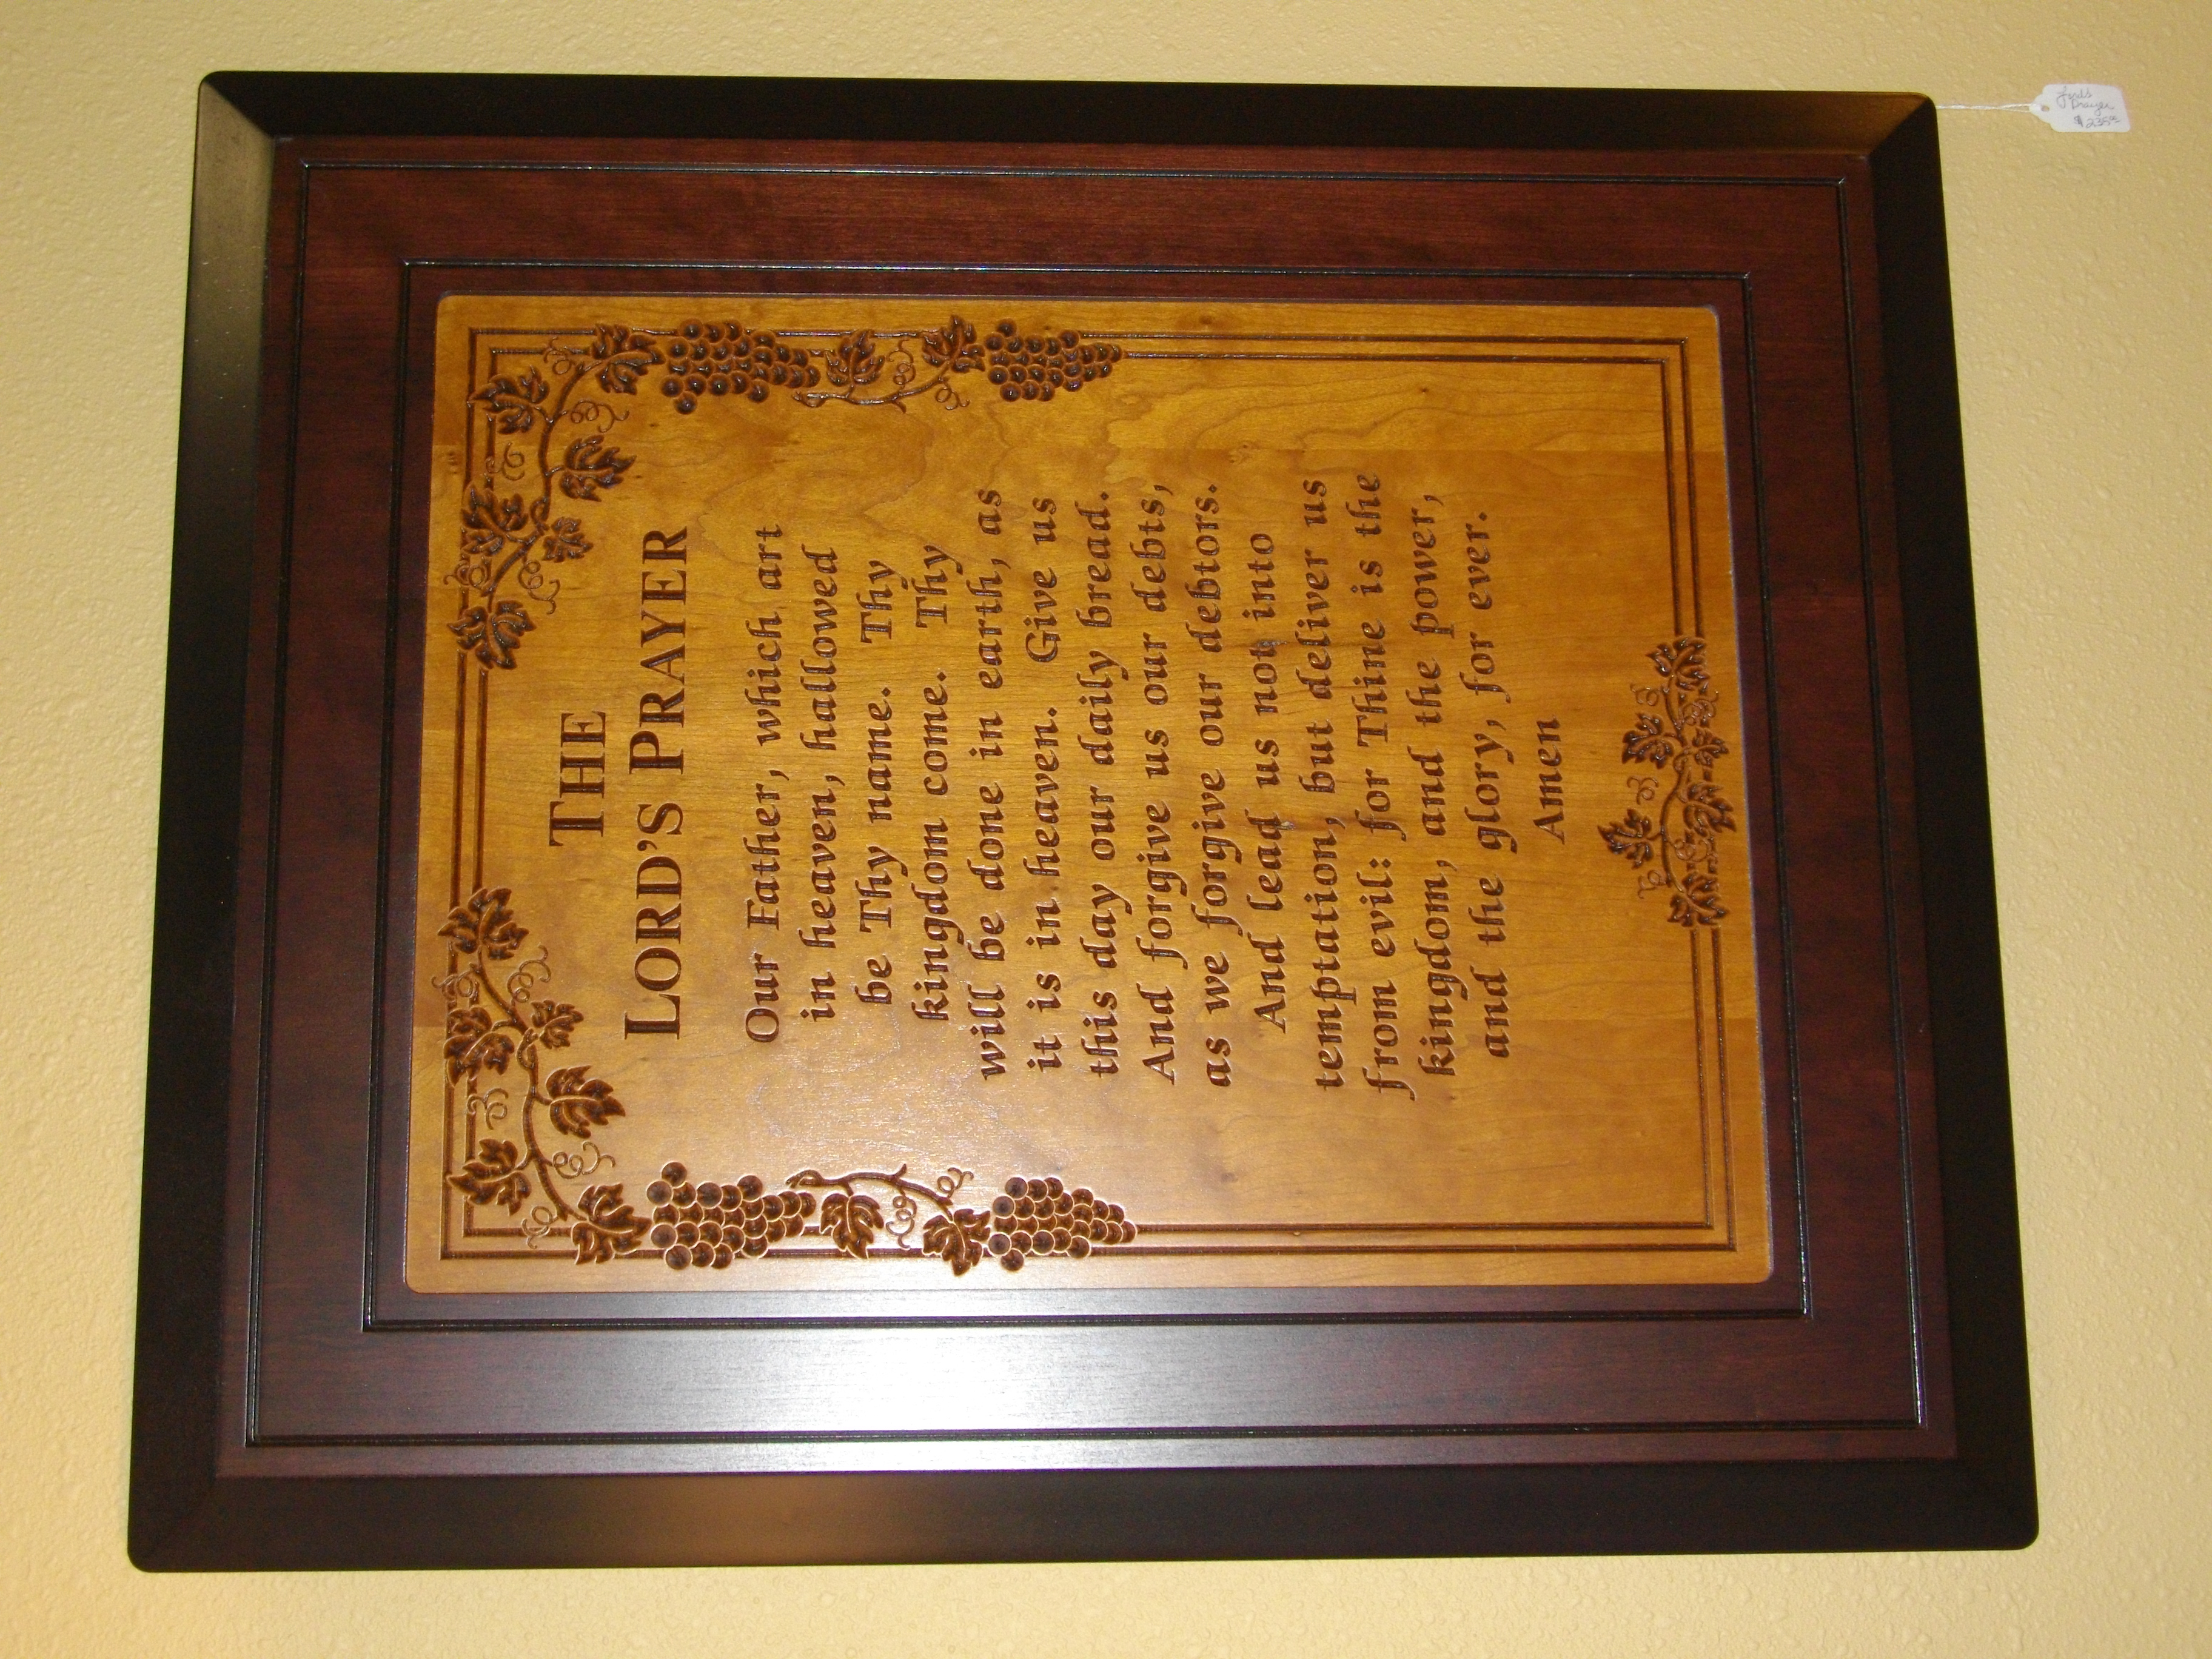 THE
LORD'S PRAYER
Our Father, which art
in heaven, hallowed
be Thy name. Thy
kingdom come. Thy
will be done in earth, as
it is in heaven. Give us
this day our daily bread.
And forgive us our debts,
as we forgive our debtors.
And lead us not into
temptation, but deliver us
from evil: for Thine is the
kingdom, and the power,
and the glory, for ever.
Amen
Lord's
Prayer